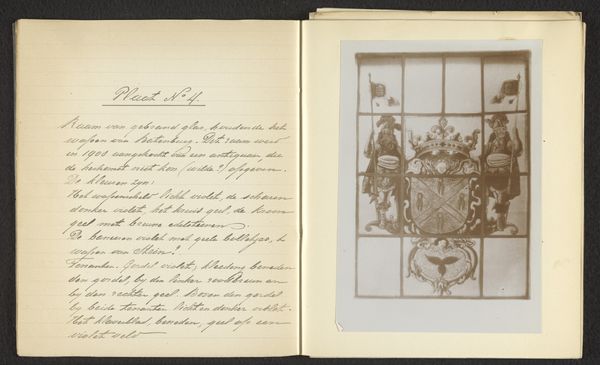 Plaat No 4.
Raam van gebrand glas, houdende het
wapen van Batenburg. Dit raam werd
in 1900 aangekocht van een antiquair, die
de herkomst niet kon (wilde?) opgeven.
De kleuren zijn:
Het wapenschild licht violet, de scharen
donker violet, het kruis geel, de kroon
geel met bruine edelsteenen.
De beneden violet met gele
wapen van Stein?
Tenanten. Gordel violet; kleeding beneden
den gordel, by den linker roodbruin en
by den rechter geel. Boven den gordel
by beide tenanten licht en donker violet.
Het klaverblad, beneden, geel op een
violet veld